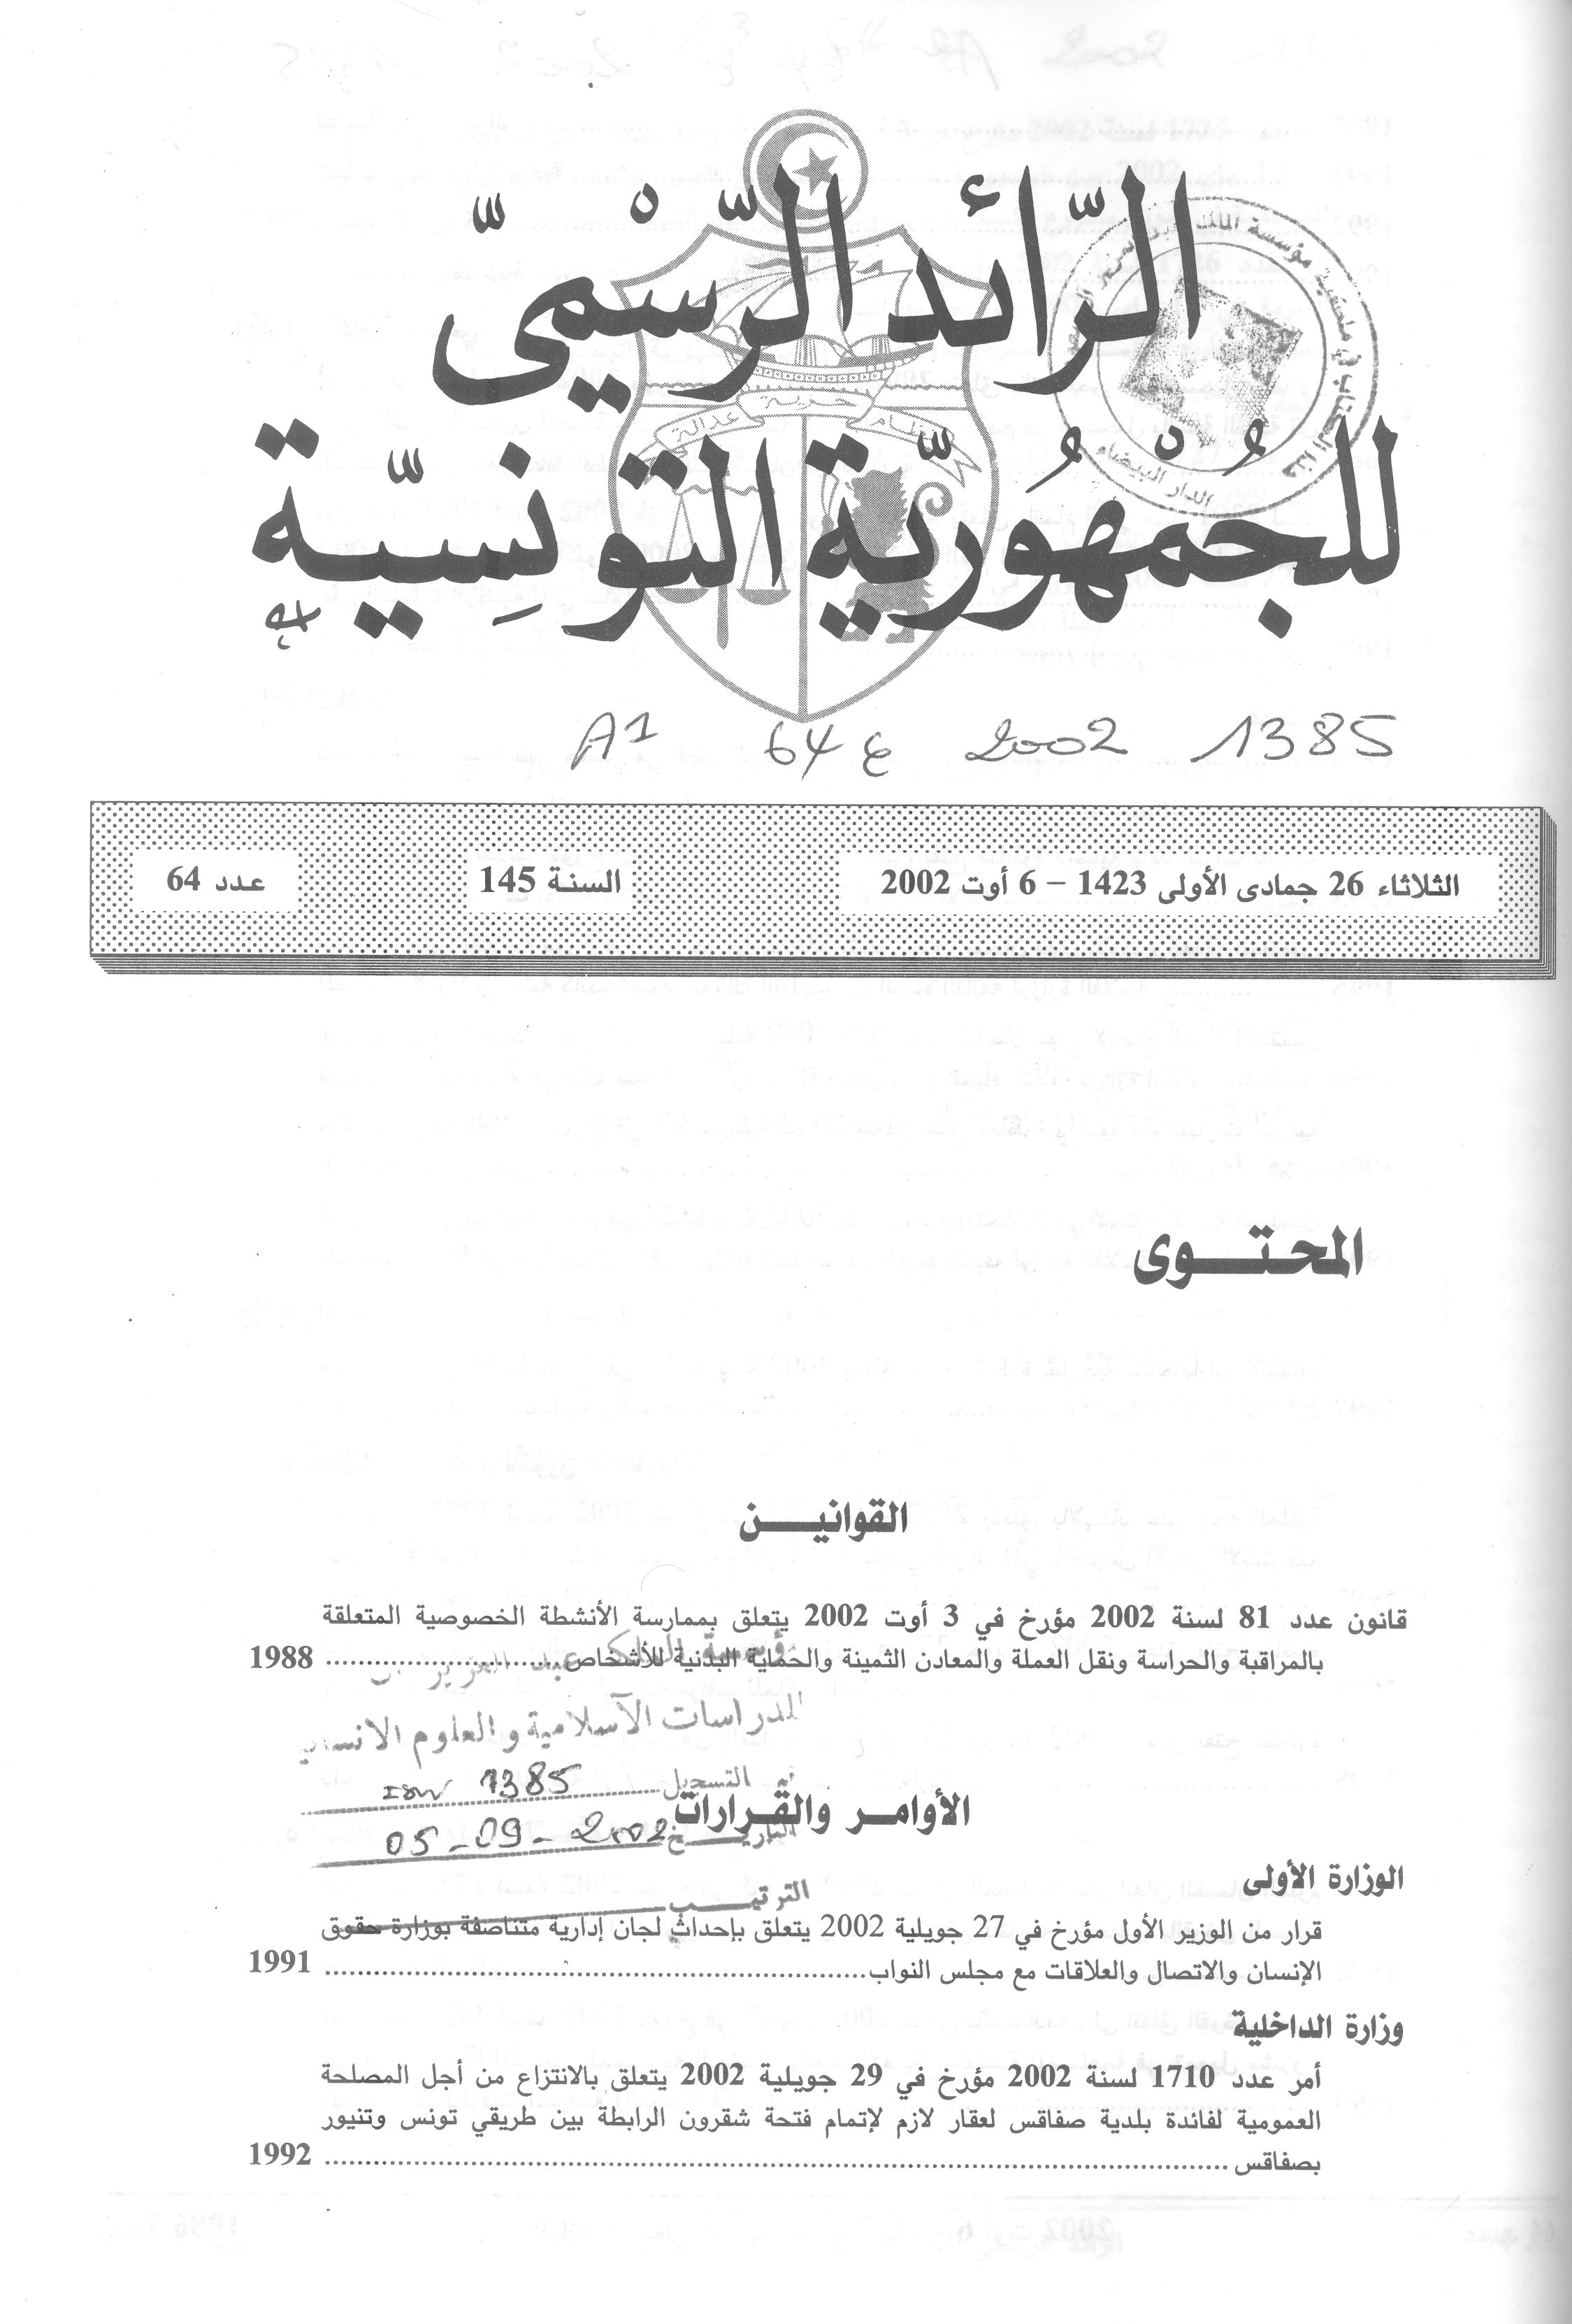 الرّائد الرّسْميّ
نظام حرية عدالة
للجُمْهُوريّة التّونِسيّة
A1 64 ع 2002 1385
الثلاثاء 26 جمادى الأولى 1423 – 6 أوت 2002 السنة 145 عدد 64
المحتــوى
القوانيــن
قانون عدد 81 لسنة 2002 مؤرخ في 3 أوت 2002 يتعلق بممارسة الأنشطة الخصوصية المتعلقة
بالمراقبة والحراسة ونقل العملة والمعادن الثمينة والحماية البدنية للأشخاص 1988
مؤسسة الملك عبد العزيز
للدراسات الآسلامية والعلوم الانسانية
التسجيل 1385
الأوامــر والقــرارات
التاريــخ 05-09-2002
الوزارة الأولى
الترتيــب
قرار من الوزير الأول مؤرخ في 27 جويلية 2002 يتعلق بإحداث لجان إدارية متناصفة بوزارة حقوق
الإنسان والاتصال والعلاقات مع مجلس النواب 1991
وزارة الداخلية
أمر عدد 1710 لسنة 2002 مؤرخ في 29 جويلية 2002 يتعلق بالانتزاع من أجل المصلحة
العمومية لفائدة بلدية صفاقس لعقار لازم لإتمام فتحة شقرون الرابطة بين طريقي تونس وتنيور
بصفاقس 1992